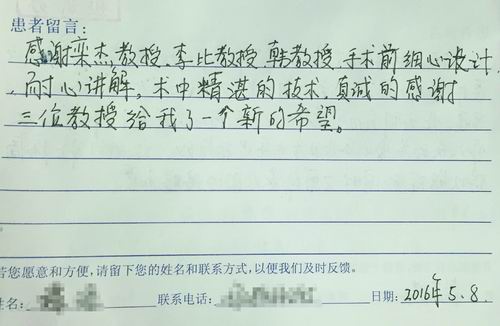 患者留言：
感谢栾杰教授.李比教授.韩教授.手术前细心设计
.耐心讲解。术中精湛的技术.真诚的感谢
三位教授给我了一个新的希望。
若您愿意和方便，请留下您的姓名和联系方式，以便我们及时反馈。
姓名： 联系电话： 日期：2016年5.8.